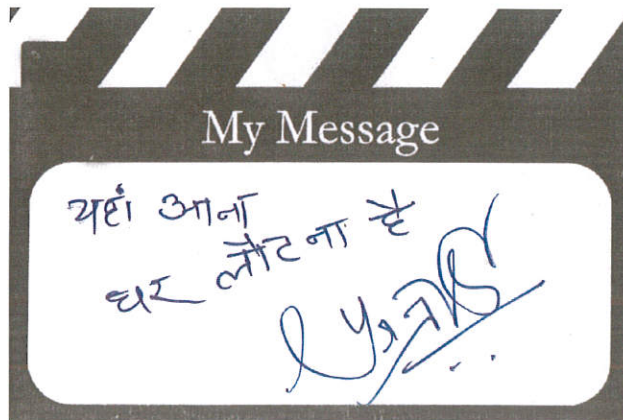 My Message
यहां आना
घर लौटना है